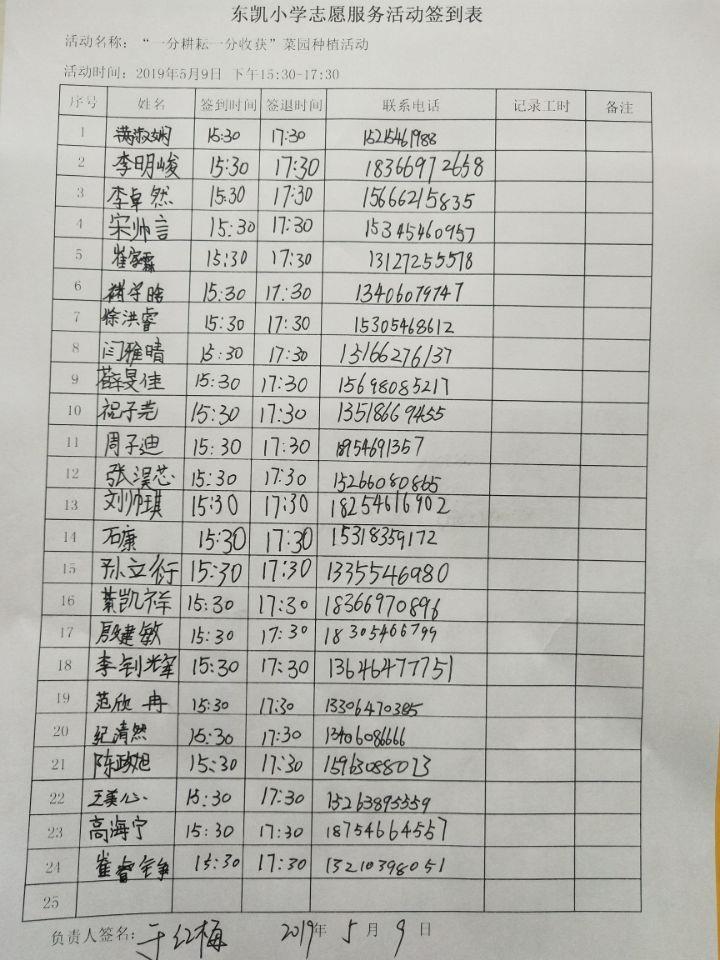 东凯小学志愿服务活动签到表
活动名称：“一分耕耘一分收获”菜园种植活动
活动时间：2019年5月9日 下午15:30-17:30
序号 姓名 签到时间 签退时间 联系电话 记录工时 备注
1 满淑娴 15:30 17:30 15215461988
2 李明峻 15:30 17:30 18366972658
3 李卓然 15:30 17:30 15666215835
4 宋帅言 15:30 17:30 15345460957
5 崔家霖 15:30 17:30 13127255578
6 15:30 17:30 13406079747
7 徐洪睿 15:30 17:30 15305468612
8 闫雅晴 15:30 17:30 15166276137
9 薛旻佳 15:30 17:30 15698085217
10 祝子芫 15:30 17:30 13518669455
11 周子迪 15:30 17:30 18954691357
12 张淏芯 15:30 17:30 15266080865
13 刘帅琪 15:30 17:30 18254616902
14 石康 15:30 17:30 15318359172
15 孙立衍 15:30 17:30 1335546980
16 綦凯祥 15:30 17:30 18366970896
17 殷建敏 15:30 17:30 18305466799
18 李钊辉 15:30 17:30 13646477751
19 范欣冉 15:30 17:30 13306470385
20 纪清然 15:30 17:30 13406086666
21 陈政旭 15:30 17:30 15963088023
22 王美心 15:30 17:30 15263895559
23 高海宁 15:30 17:30 18754664557
24 崔睿铮 15:30 17:30 13210398051
25
负责人签名：于红梅 2019年 5月 9日